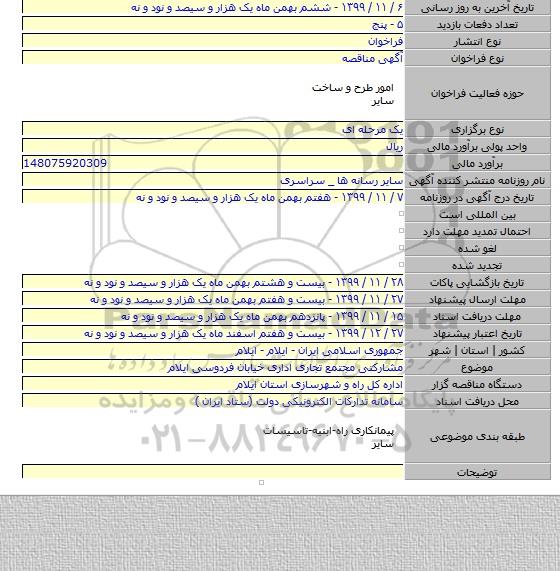 تاریخ آخرین به روز رسانی ۶ / ۱۱ / ۱۳۹۹ - ششم بهمن ماه یک هزار و سیصد و نود و نه
تعداد دفعات بازدید ۵ - پنج
نوع انتشار فراخوان
نوع فراخوان آگهی مناقصه
حوزه فعالیت فراخوان امور طرح و ساخت
سایر
نوع برگزاری یک مرحله ای
واحد پولی برآورد مالی ریال
برآورد مالی 148075920309
نام روزنامه منتشر کننده آگهی سایر رسانه ها _ سراسری
تاریخ درج آگهی در روزنامه ۷ / ۱۱ / ۱۳۹۹ - هفتم بهمن ماه یک هزار و سیصد و نود و نه
بین المللی است
احتمال تمدید مهلت دارد
لغو شده
تجدید شده
تاریخ بازگشایی پاکات ۲۸ / ۱۱ / ۱۳۹۹ - بیست و هشتم بهمن ماه یک هزار و سیصد و نود و نه
مهلت ارسال پیشنهاد ۲۷ / ۱۱ / ۱۳۹۹ - بیست و هفتم بهمن ماه یک هزار و سیصد و نود و نه
مهلت دریافت اسناد ۱۵ / ۱۱ / ۱۳۹۹ - پانزدهم بهمن ماه یک هزار و سیصد و نود و نه
تاریخ اعتبار پیشنهاد ۲۷ / ۱۲ / ۱۳۹۹ - بیست و هفتم اسفند ماه یک هزار و سیصد و نود و نه
کشور | استان | شهر جمهوری اسلامی ایران - ایلام - ایلام
موضوع مشارکتی مجتمع تجاری اداری خیابان فردوسی ایلام
دستگاه مناقصه گزار اداره کل راه و شهرسازی استان ایلام
محل دریافت اسناد سامانه تدارکات الکترونیکی دولت (ستاد ایران )
طبقه بندی موضوعی پیمانکاری راه-ابنیه-تاسیسات
سایر
توضیحات
۰۲۱-۸۸۳۴۹۶۷۰-۵